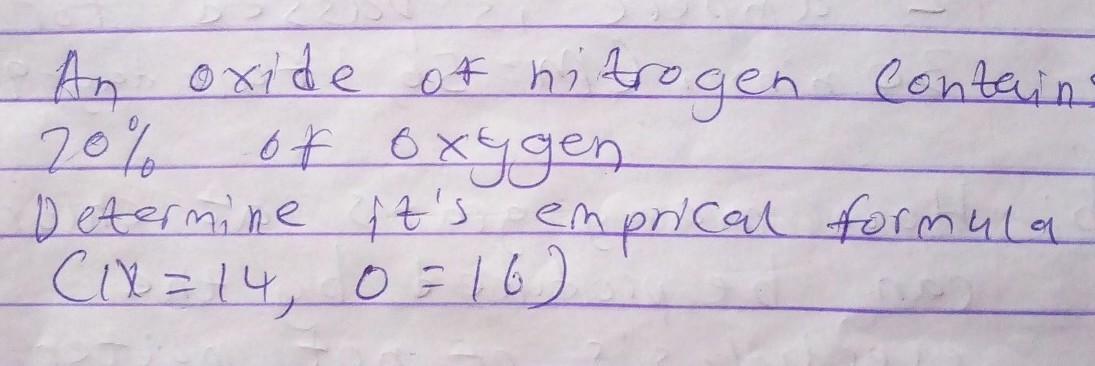 An oxide of nitrogen contains
70% of oxygen
Determine it's emprical formula
(N=14, O=16)